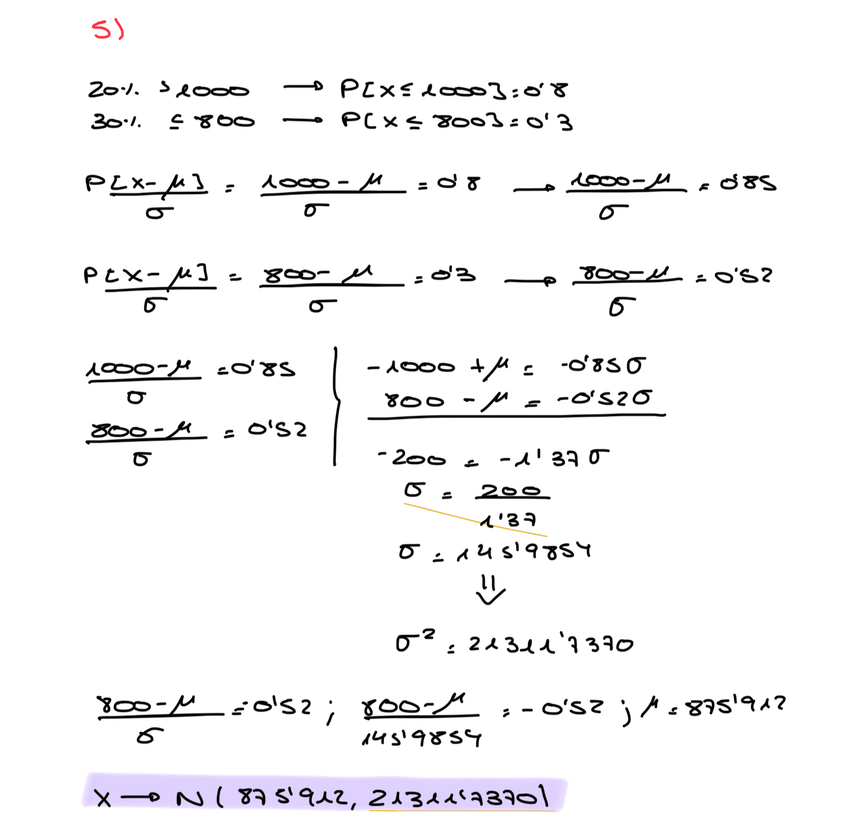 5)
20% > 1000 → P[X ≤ 1000] = 0'8
30% ≤ 800 → P[X ≤ 800] = 0'3
P[X - μ]/σ = (1000 - μ)/σ = 0'8 → (1000 - μ)/σ = 0'85
P[X - μ]/σ = (800 - μ)/σ = 0'3 → (800 - μ)/σ = 0'52
(1000 - μ)/σ = 0'85
(800 - μ)/σ = 0'52
-1000 + μ = -0'85σ
800 - μ = -0'52σ
-200 = -1'37σ
σ = 200/1'37
σ = 145'9854
⇓
σ² = 21311'7370
(800 - μ)/σ = -0'52 ; (800 - μ)/145'9854 = -0'52 ; μ = 875'912
X → N(875'912, 21311'7370)